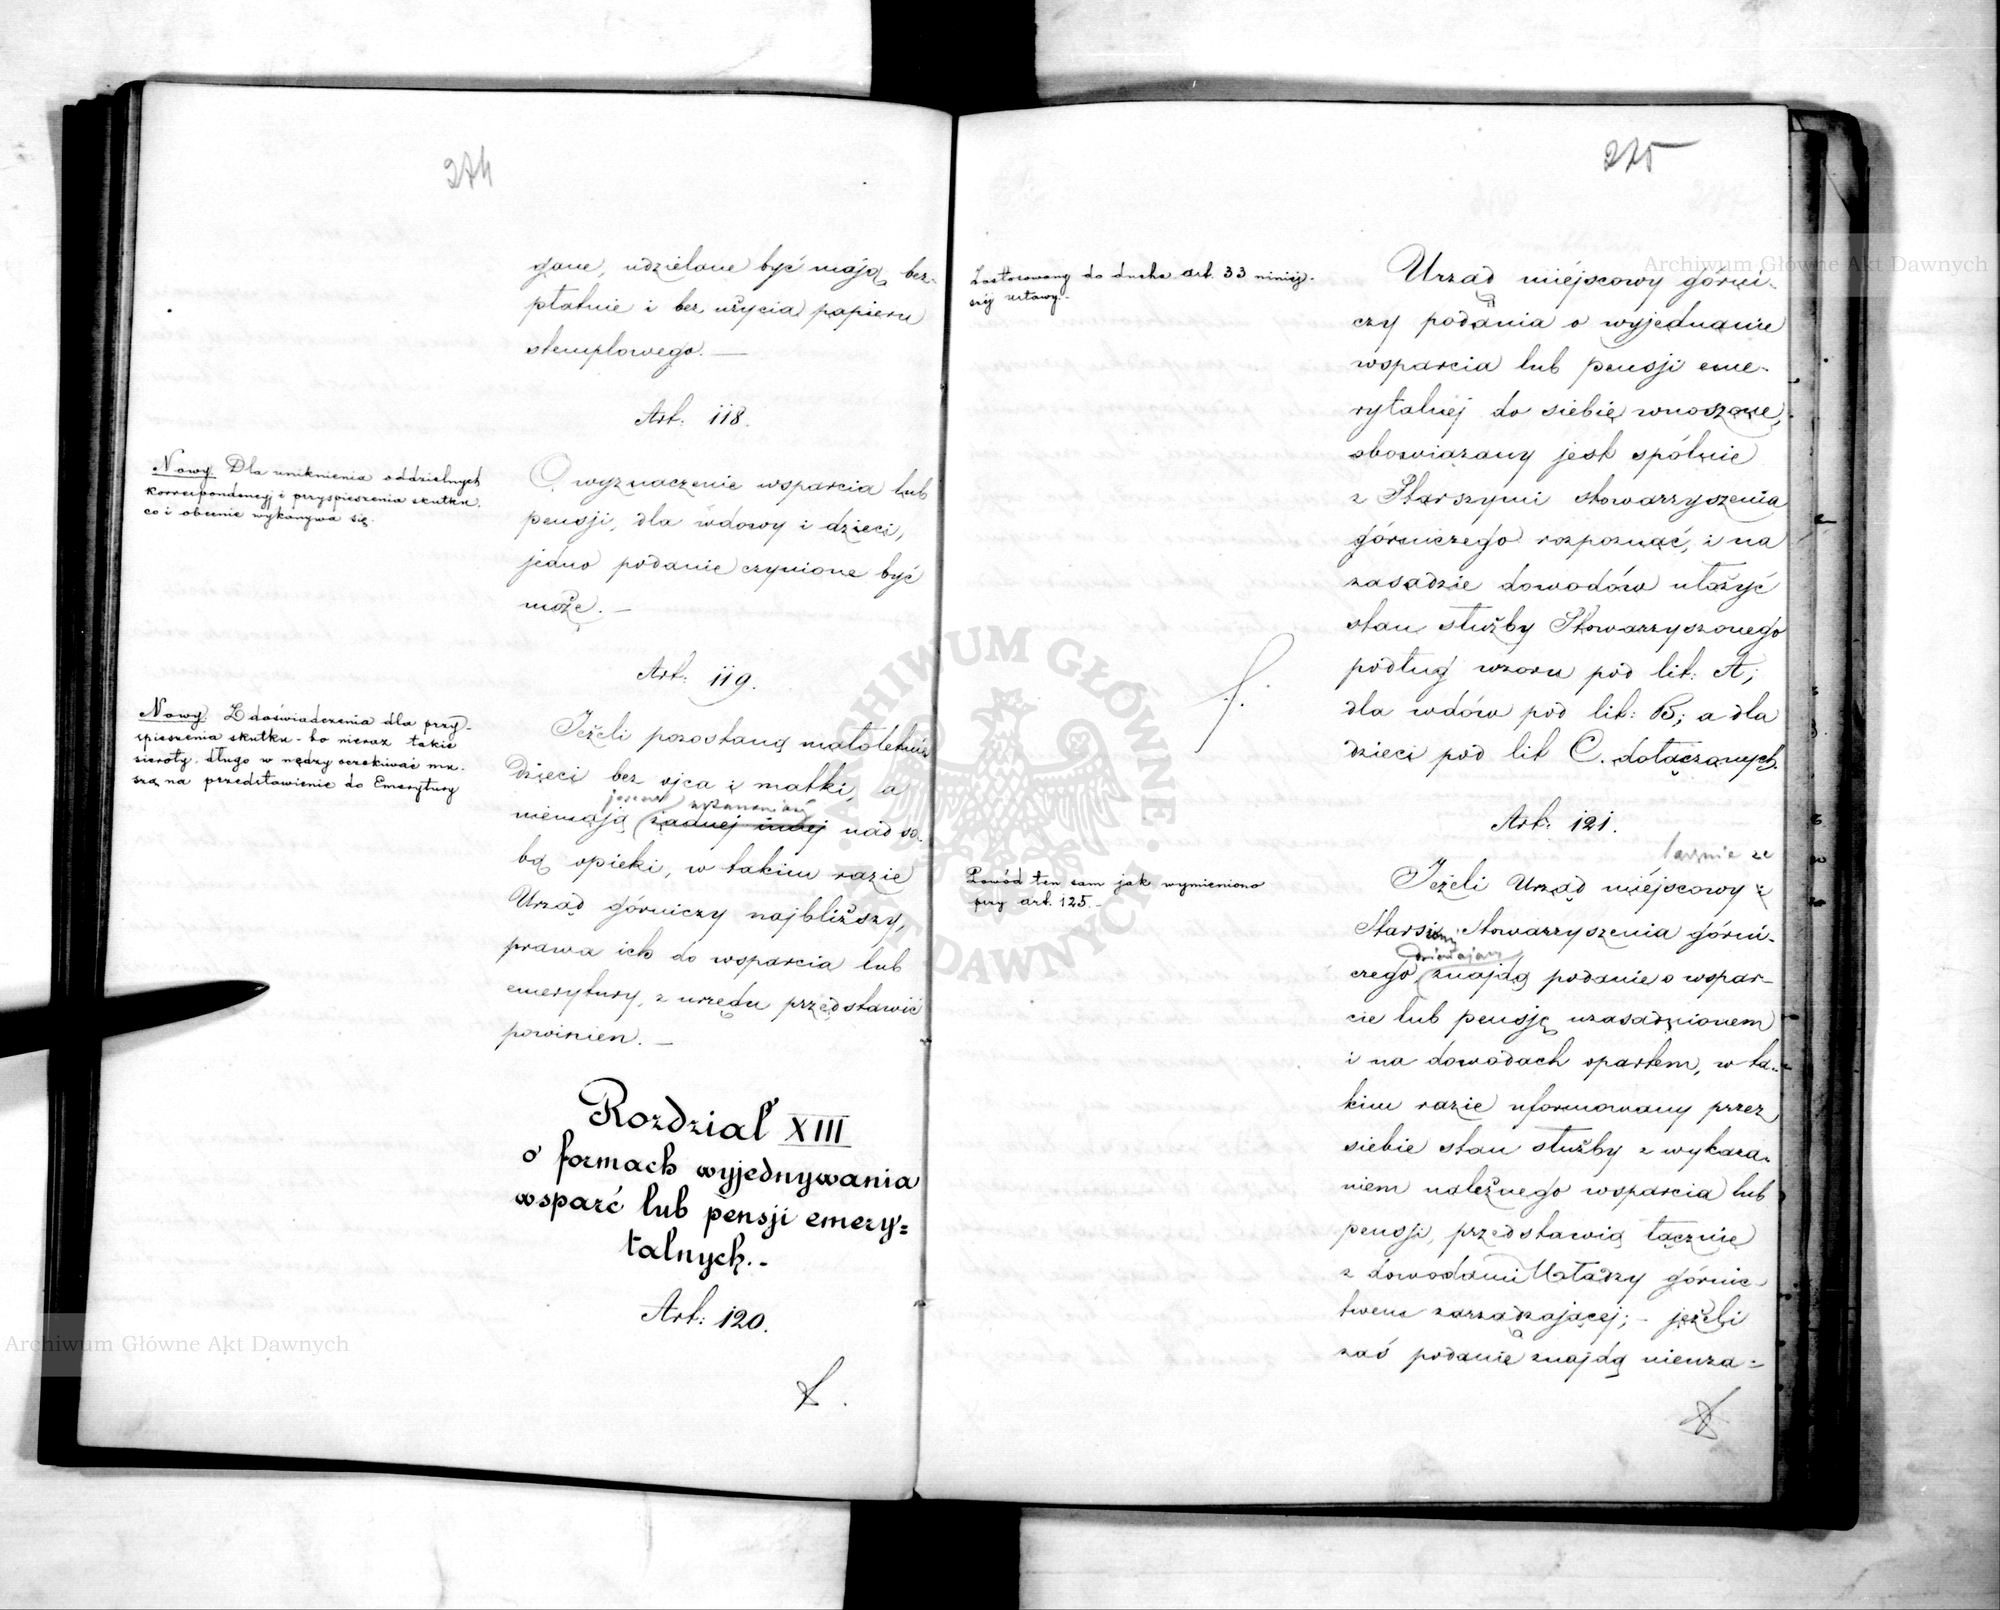 274
gane, udzielane być mają bez-
płatnie i bez użycia papieru
stemplowego. —
Art: 118.
Nowy. Dla uniknienia oddzielnych
korrespondencyj i przyspieszenia skutku,
co i obecnie wykonywa się.
O wyznaczenie wsparcia lub
pensji, dla wdowy i dzieci,
jedno podanie czynione być
może. —
Art: 119.
Nowy. Z doświadczenia dla przy-
spieszenia skutku - bo nieraz takie
sieroty długo w nędzy oczekiwać mu-
szą na przedstawienie do Emerytury
Jeżeli pozostaną małoletnie
dzieci bez ojca i matki, a
niemają żadnej innej nad so-
bą opieki, w takim razie
Urząd górniczy najbliższy,
prawa ich do wsparcia lub
emerytury, z urzędu przedstawić
powinien. —
Rozdział XIII
o formach wyjednywania
wsparć lub pensji emery=
talnych.-
Art: 120.
275
Zastosowany do ducha art. 33 niniej-
szej ustawy.-
Urząd miejscowy górni-
czy podania o wyjednanie
wsparcia lub pensji eme-
rytalnej do siebie wnoszone,
obowiązany jest spólnie
z Starszymi stowarzyszenia
górniczego rozpoznać, i na
zasadzie dowodów ułożyć
stan służby Stowarzyszonego
podług wzoru pod lit: A;
dla wdów pod lit: B; a dla
dzieci pod lit C. dołączonych.
Art: 121.
łącznie ze
Powód ten sam jak wymieniono
przy art. 125.-
Jeżeli Urząd miejscowy i
Starsi Stowarzyszenia górni-
czego znajdą podanie o wspar-
cie lub pensję uzasadnionem
i na dowodach opartem, w ta-
kim razie uformowany przez
siebie stan służby z wykaza-
niem należnego wsparcia lub
pensji, przedstawią łącznie
z dowodami Władzy górnic-
twem zarządzającej; - jeżeli
zaś podanie znajdą nieuza-
ARCHIWUM GŁÓWNE AKT DAWNYCH
Archiwum Główne Akt Dawnych
Archiwum Główne Akt Dawnych